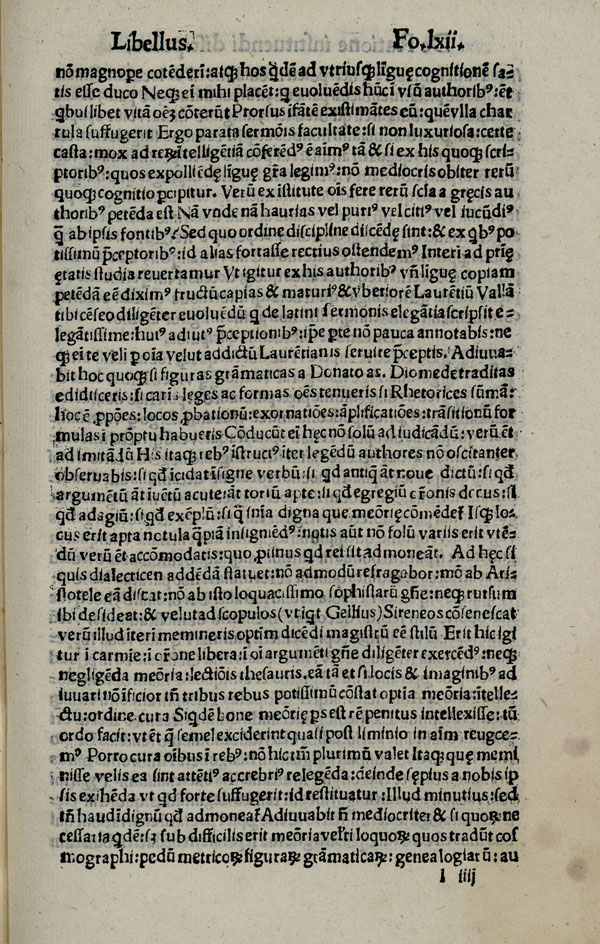 Libellus. Fo. lxii.
nõ magnope cõtẽderĩ: atq; hos q̃dẽ ad vtriusq; lĩguę cognitionẽ sa⸗
tis esse duco Neq; eĩ mihi placẽt: q̃ euoluẽdis hũci vsũ authorib⁹: ẽt
qbuslibet vitã oẽʒ cõterũt Prorsus ĩfãtẽ existimãtes eũ: quẽvlla char
tula suffugerit Ergo parata sermõis facultate: si non luxuriosa: certe
casta: mox ad reꝝ ĩtelligẽtiã cõferẽd⁹ ẽ aĩm⁹ tã & si ex his quoq; scri⸗
ptorib⁹: quos expoliẽdę lĩguę gr̃a legim⁹: nõ mediocris obiter rerũ
quoq; cognitio pcipitur. Verũ ex istitute oĩs fere rerũ scĩa a gręcis au
thorib⁹ petẽda est Nã vnde nã haurias vel puri⁹ vel citi⁹ vel iucũdi⁹
q̃ ab ipsis fontib⁹? Sed quo ordine discipline discẽdę sint: & ex qb⁹ po
tissimũ p̃ceptorib⁹: id alias fortasse rectius ostendem⁹ Interĩ ad prię
ętatis studia reuertamur Vt igitur ex his authorib⁹ vñ lĩguę copiam
petẽdã eẽ dixim⁹ fructũ capias & maturi⁹ & vberiorẽ Laurẽtiũ Vallã
tibi cẽseo diligẽter euoluẽdũ q de latini sermonis elegãtia scripsit e⸗
legãtissime: hui⁹ adiut⁹ p̃ceptionib⁹: ip̃e p te nõ pauca annotabis: ne
q; eĩ te velĩ p oĩa velut addictũ Laurẽtianis seruire p̃ceptis. Adiuua⸗
bit hoc quoq; si figuras grãmaticas a Donato ac Diomede traditas
edidiceris: si carĩs leges ac formas oẽs tenueris si Rhetorices sũmã:
hoc ẽ ꝓpões: locos ꝓbationũ: exornatiões: ãplificatiões: trãsitionũ for
mulas ĩ prõptu habueris Cõducũt eĩ hęc nõ solũ ad iudicãdũ: verũ ẽt
ad imitãdũ His itaq; reb⁹ istruct⁹ iter legẽdũ authores nõ oscitanter
obseruabis: si qd ĩcidat ĩsigne verbũ: si qd antiq ãt noue dictũ: si qd
argumẽtũ ãt ĩuẽtũ acute: ãt tortũ apte: si qd egregiũ or̃onis decus: si
qd adagiũ: si qd exẽplũ: si q̃ sñia digna que meõrię cõmẽdet Isq; lo⸗
cus erit apta notula q̃piã insigniẽd⁹: notis aũt nõ solũ variis erit vtẽ⸗
dũ verũ ẽt accõmodatis: quo ꝓtinus qd rei sit admoneãt. Ad hęc si
quis dialecticen addẽdã statuet: nõ admodũ refragabor: mõ ab Ari⸗
stotele eã discat: nõ ab isto loquacissimo sophistarũ gñe: neq; rursum
ibi desideat: & velut ad scopulos (vt iqt Gellius) Sireneos cõsenescat
verũ illud iterĩ memineris optim̃ dicẽdi magistrũ eẽ stilũ Erit hic igi
tur ĩ carmĩe: ĩ or̃one libera: ĩ oĩ argumẽti gñe diligẽter exercẽd⁹: neq;
negligẽda meõria: lectiõis thesaurus. eã tã et si locis & imaginib⁹ ad
iuuari nõ ĩficior tñ tribus rebus potissimũ cõstat optĩa meõria: ĩtelle⸗
ctu: ordine. cura Siqdẽ bone meõrię ps est rẽ penitus intellexisse: tũ
ordo facit: vt ẽt q̃ semel exciderint quasi post liminio in aĩm reuoce⸗
m⁹ Porro cura oĩbus ĩ reb⁹: nõ hic tm̃ plurimũ valet Itaq; quę memĩ
nisse velis ea sint attẽti⁹ ac crebri⁹ relegẽda: deinde sępius a nobis ip
sis exihẽda vt qd forte suffugerit: id restituatur: Illud minutius: sed
tñ haud ĩdignũ qd admoneat Adiuuabit ñ mediocriter & si quoꝝ ne
cessaria qdẽ: sʒ subdifficilis erit meõria velti locoꝝ quos tradũt cos
mographi: pedũ metricoꝝ figuraꝝ grãmaticaꝝ: genealogiarũ: au
l iiij